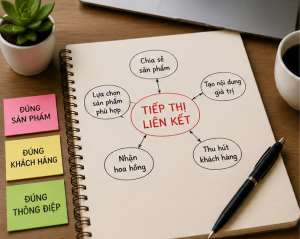 Chia sẻ
sản phẩm
Lựa chọn
sản phẩm
phù hợp
Tạo nội dung
giá trị
TIẾP THỊ
LIÊN KẾT
Nhận
hoa hồng
Thu hút
khách hàng
ĐÚNG
SẢN PHẨM
ĐÚNG
KHÁCH HÀNG
ĐÚNG
THÔNG ĐIỆP